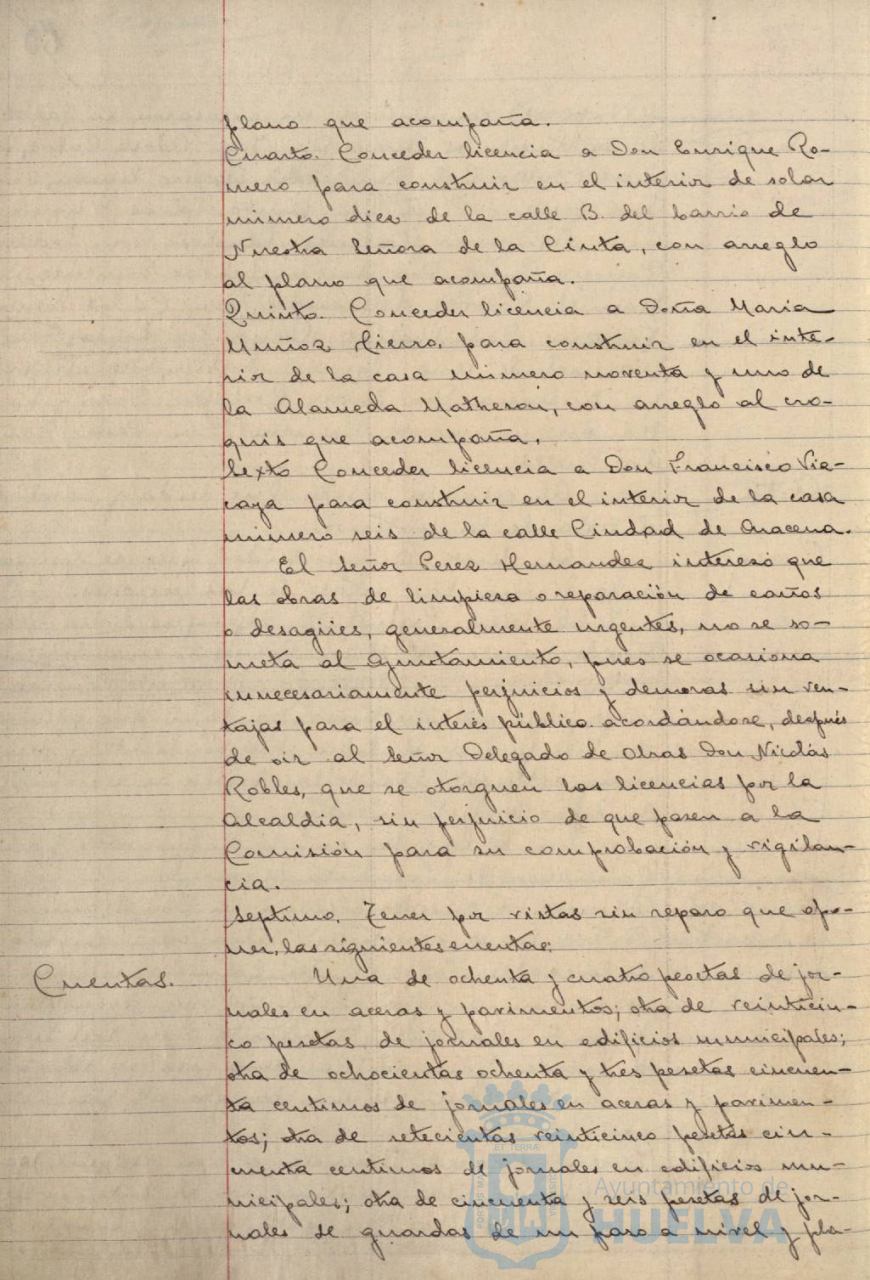 plano que acompaña.
Cuarto. Conceder licencia a Don Enrique Ro-
mero para construir en el interior de solar
número diez de la calle B. del barrio de
Nuestra Señora de la Cinta, con arreglo
al plano que acompaña.
Quinto. Conceder licencia a Doña Maria
Muñoz Cierro, para construir en el inte-
rior de la casa número noventa y uno de
la Alameda Matheson, con arreglo al cro-
quis que acompaña.
Sexto Conceder licencia a Don Francisco Viz-
caya para construir en el interior de la casa
número seis de la calle Ciudad de Aracena.
El Señor Perez Hernandez interesó que
las obras de limpieza o reparación de caños
o desagües, generalmente urgentes, no se so-
meta al Ayuntamiento, pues se ocasiona
innecesariamente perjuicios y demoras sin ven-
tajas para el interés público. acordándose, después
de oir al Señor Delegado de Obras Don Nicolás
Robles, que se otorguen las licencias por la
Alcaldia, sin perjuicio de que pasen a la
Comisión para su comprobación y vigilan-
cia.
Septimo. Tener por vistas sin reparo que opo-
ner, las siguientes cuentas:
Cuentas.
Una de ochenta y cuatro pesetas de jor-
nales en aceras y pavimentos; otra de veinticin-
co pesetas de jornales en edificios municipales;
otra de ochocientas ochenta y tres pesetas cincuen-
ta centimos de jornales en aceras y pavimen-
tos; otra de setecientas veinticinco pesetas cin-
cuenta centimos de jornales en edificios mu-
nicipales; otra de cincuenta y seis pesetas de jor-
nales de guardas de un paso a nivel y pla-
Ayuntamiento de
HUELVA